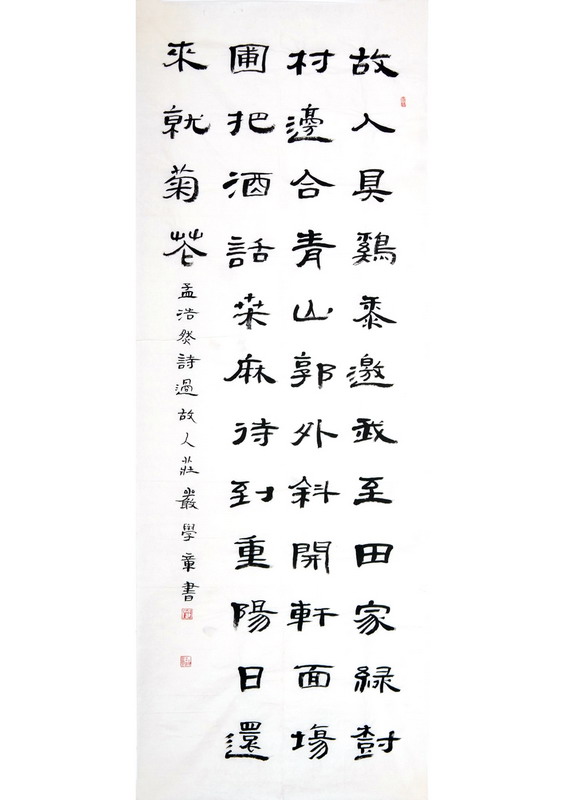 故人具鷄黍邀我至田家綠樹
村邊合青山郭外斜開軒面場
圃把酒話桑麻待到重陽日還
來就菊花
孟浩然詩過故人莊嚴學章書